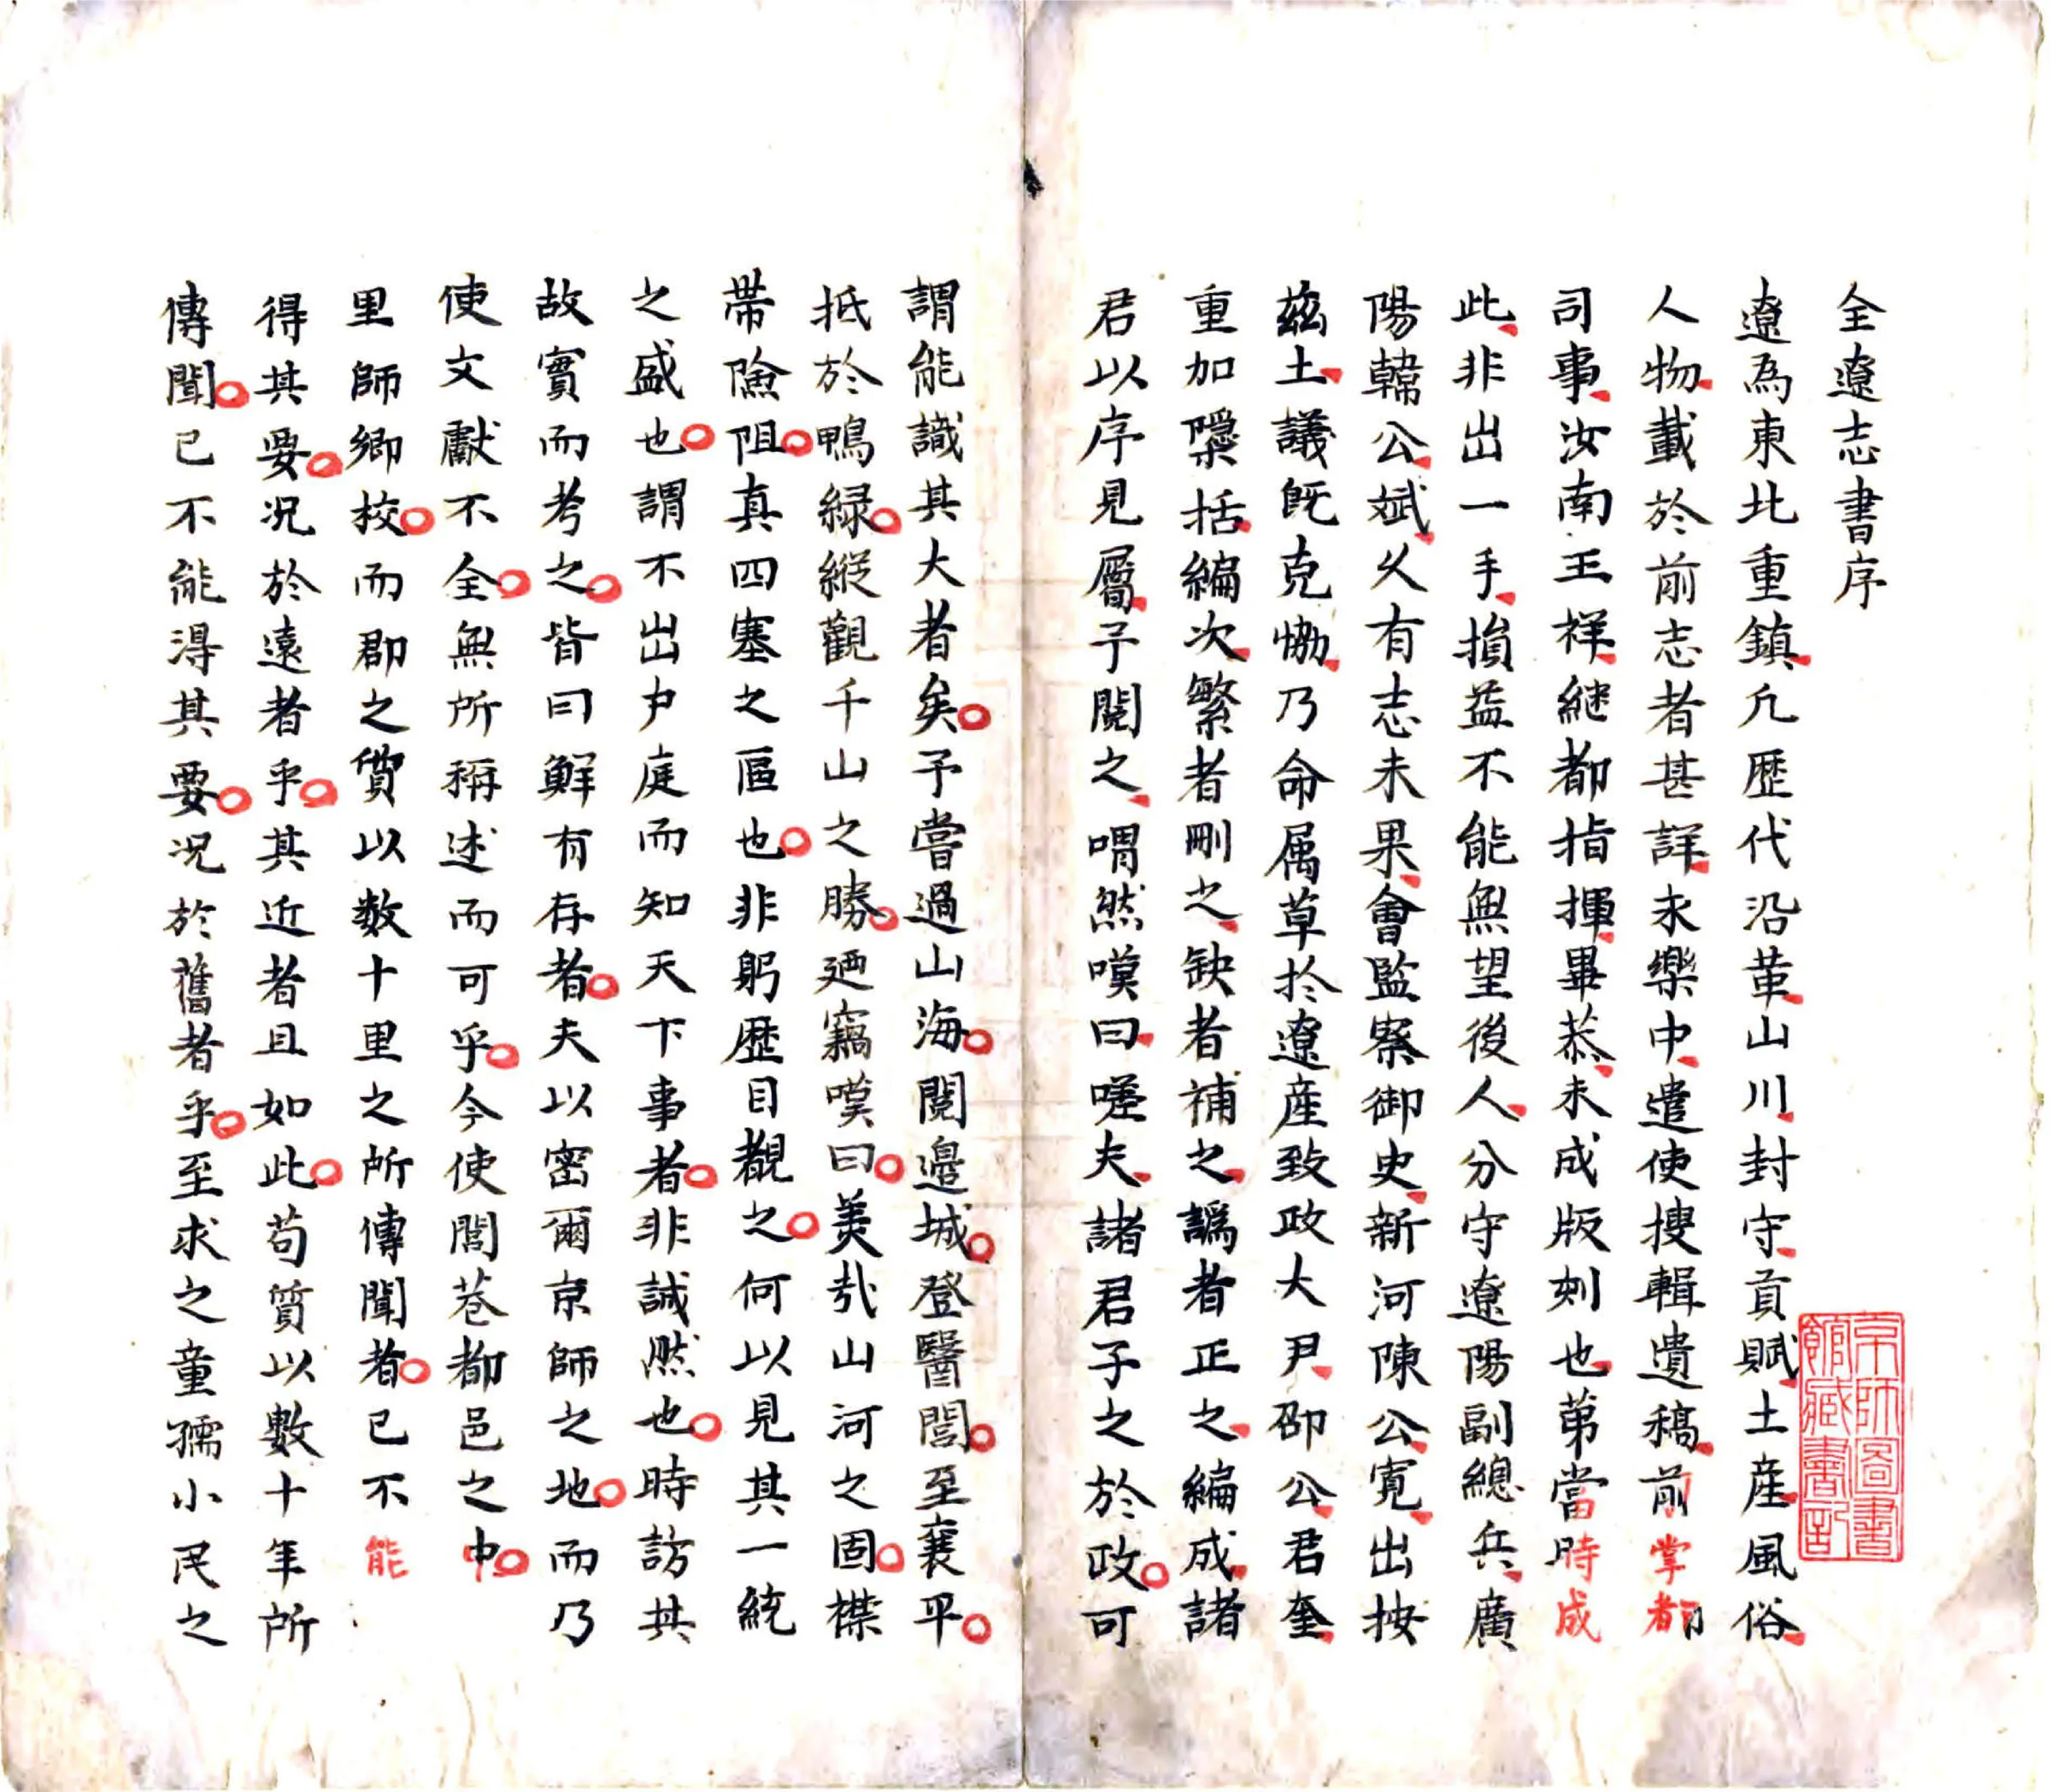 全遼志書序
遼為東北重鎮凢歷代沿革山川封守貢賦土産風俗
人物載於前志者甚詳永樂中遣使搜輯遺稿前掌都
司事汝南王祥継都指揮畢恭未成版刻也苐當時成
此非出一手損益不能無望後人分守遼陽副總兵廣
陽韓公斌乆有志未果會監察御史新河陳公寛出按
兹土議既克恊乃命属草扵遼産致政大尹邵公君奎
重加櫽括編次繁者刪之缺者補之譌者正之編成諸
君以序見屬予閱之喟然嘆曰嗟夫諸君子之於政可
謂能識其大者矣予嘗過山海閱邊城登醫閭至襄平
抵於鴨緑縱觀千山之勝廼竊嘆曰美哉山河之固襟
帶險阻真四塞之區也非躬歷目覩之何以見其一統
之盛也謂不出户庭而知天下事者非誠然也時訪其
故實而考之皆曰鮮有存者夫以密爾京師之地而乃
使文獻不全無所稱述而可乎今使閭巷都邑之中
里師鄉校而郡之儥以数十里之所傳聞者已不能
得其要况於遠者乎其近者且如此苟質以數十年所
傳聞已不能得其要况於舊者乎至求之童孺小民之
京師圖書
館臧書記